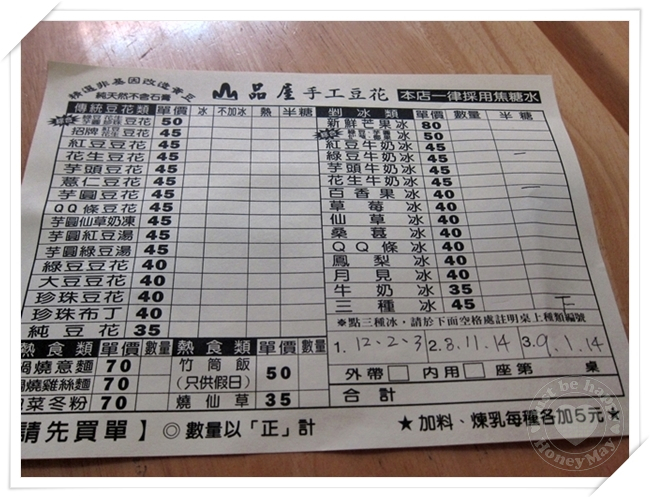 精選非基因改造黃豆
純天然不含石膏
山品屋手工豆花
本店一律採用焦糖水
傳統豆花類 單價 冰 不加冰 熱 半糖
豆花 50
招牌 豆花 45
紅豆豆花 45
花生豆花 45
芋頭豆花 45
薏仁豆花 45
芋圓豆花 45
QQ條豆花 45
芋圓仙草奶凍 45
芋圓紅豆湯 45
芋圓綠豆湯 45
綠豆豆花 40
大豆豆花 40
珍珠豆花 40
珍珠布丁 40
純豆花 35
剉冰類 單價 數量 半糖
新鮮芒果冰 80
冰 50
紅豆牛奶冰 45
綠豆牛奶冰 45
芋頭牛奶冰 45
花生牛奶冰 45
百香果冰 40
草莓冰 40
仙草冰 40
桑葚冰 40
QQ條冰 40
鳳梨冰 40
月見冰 40
牛奶冰 35
三種冰 45
※點三種冰,請於下面空格處註明桌上種類編號
1. 12.2.3 2. 8.11.14 3. 9.1.14
外帶□ 內用□ 座第 桌
合計
熱食類 單價 數量 熱食類 單價 數量
鍋燒意麵 70
鍋燒雞絲麵 70
泡菜冬粉 70
竹筒飯 (只供假日) 50
燒仙草 35
請先買單】◎數量以「正」計
★加料、煉乳每種各加5元★
Just be happy
HoneyMay